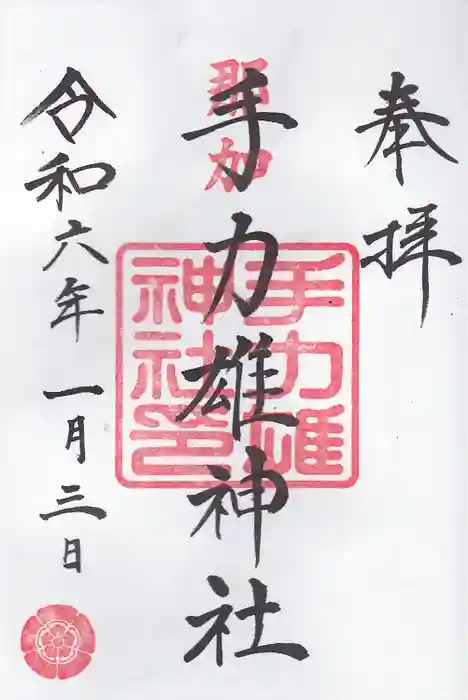 奉拝
那加
手力雄神社
手力雄
神社印
令和六年一月三日